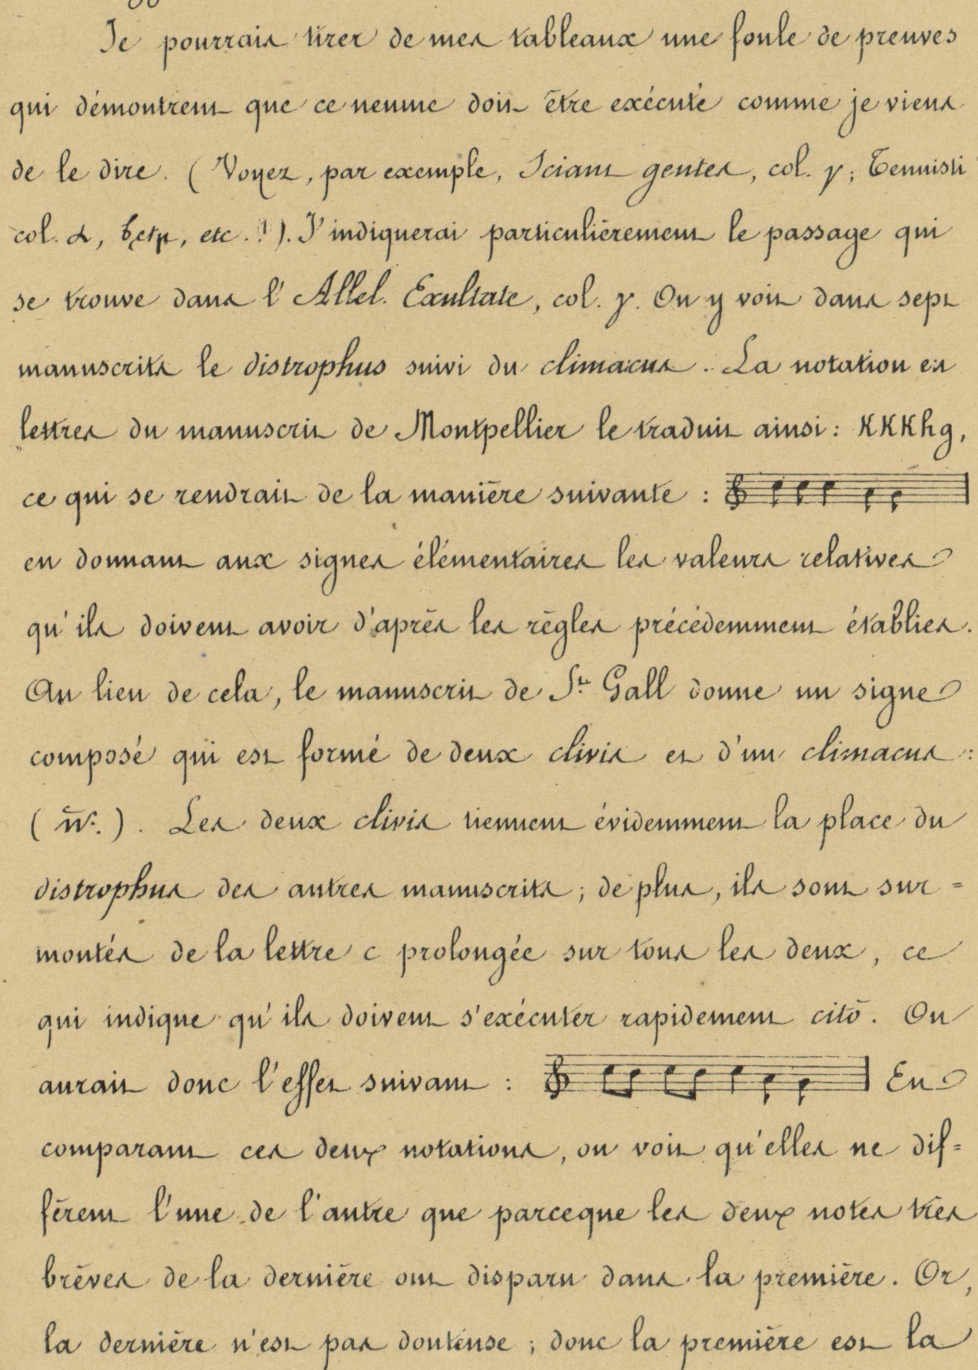 Je pourrais tirer de mes tableaux une foule de preuves
qui démontrent que ce neume doit être exécuté comme je viens
de le dire. (Voyez, par exemple, Sciant gentes, col. γ; Tenuisti
col. α, β et μ, etc. !). J'indiquerai particulièrement le passage qui
se trouve dans l'Allel. Exultate, col. γ. On y voit dans sept
manuscrits le distrophus suivi du climacus. La notation en
lettres du manuscrit de Montpellier le traduit ainsi : KKKhg,
ce qui se rendrait de la manière suivante :
en donnant aux signes élémentaires les valeurs relatives
qu'ils doivent avoir d'après les règles précédemment établies.
Au lieu de cela, le manuscrit de St. Gall donne un signe
composé qui est formé de deux clivis et d'un climacus :
( ). Les deux clivis tiennent évidemment la place du
distrophus des autres manuscrits ; de plus, ils sont sur=
montés de la lettre c prolongée sur tous les deux, ce
qui indique qu'ils doivent s'exécuter rapidement citò. On
aurait donc l'effet suivant : En
comparant ces deux notations, on voit qu'elles ne dif=
fèrent l'une de l'autre que parceque les deux notes très
brèves de la dernière ont disparu dans la première. Or,
la dernière n'est pas douteuse ; donc la première est la